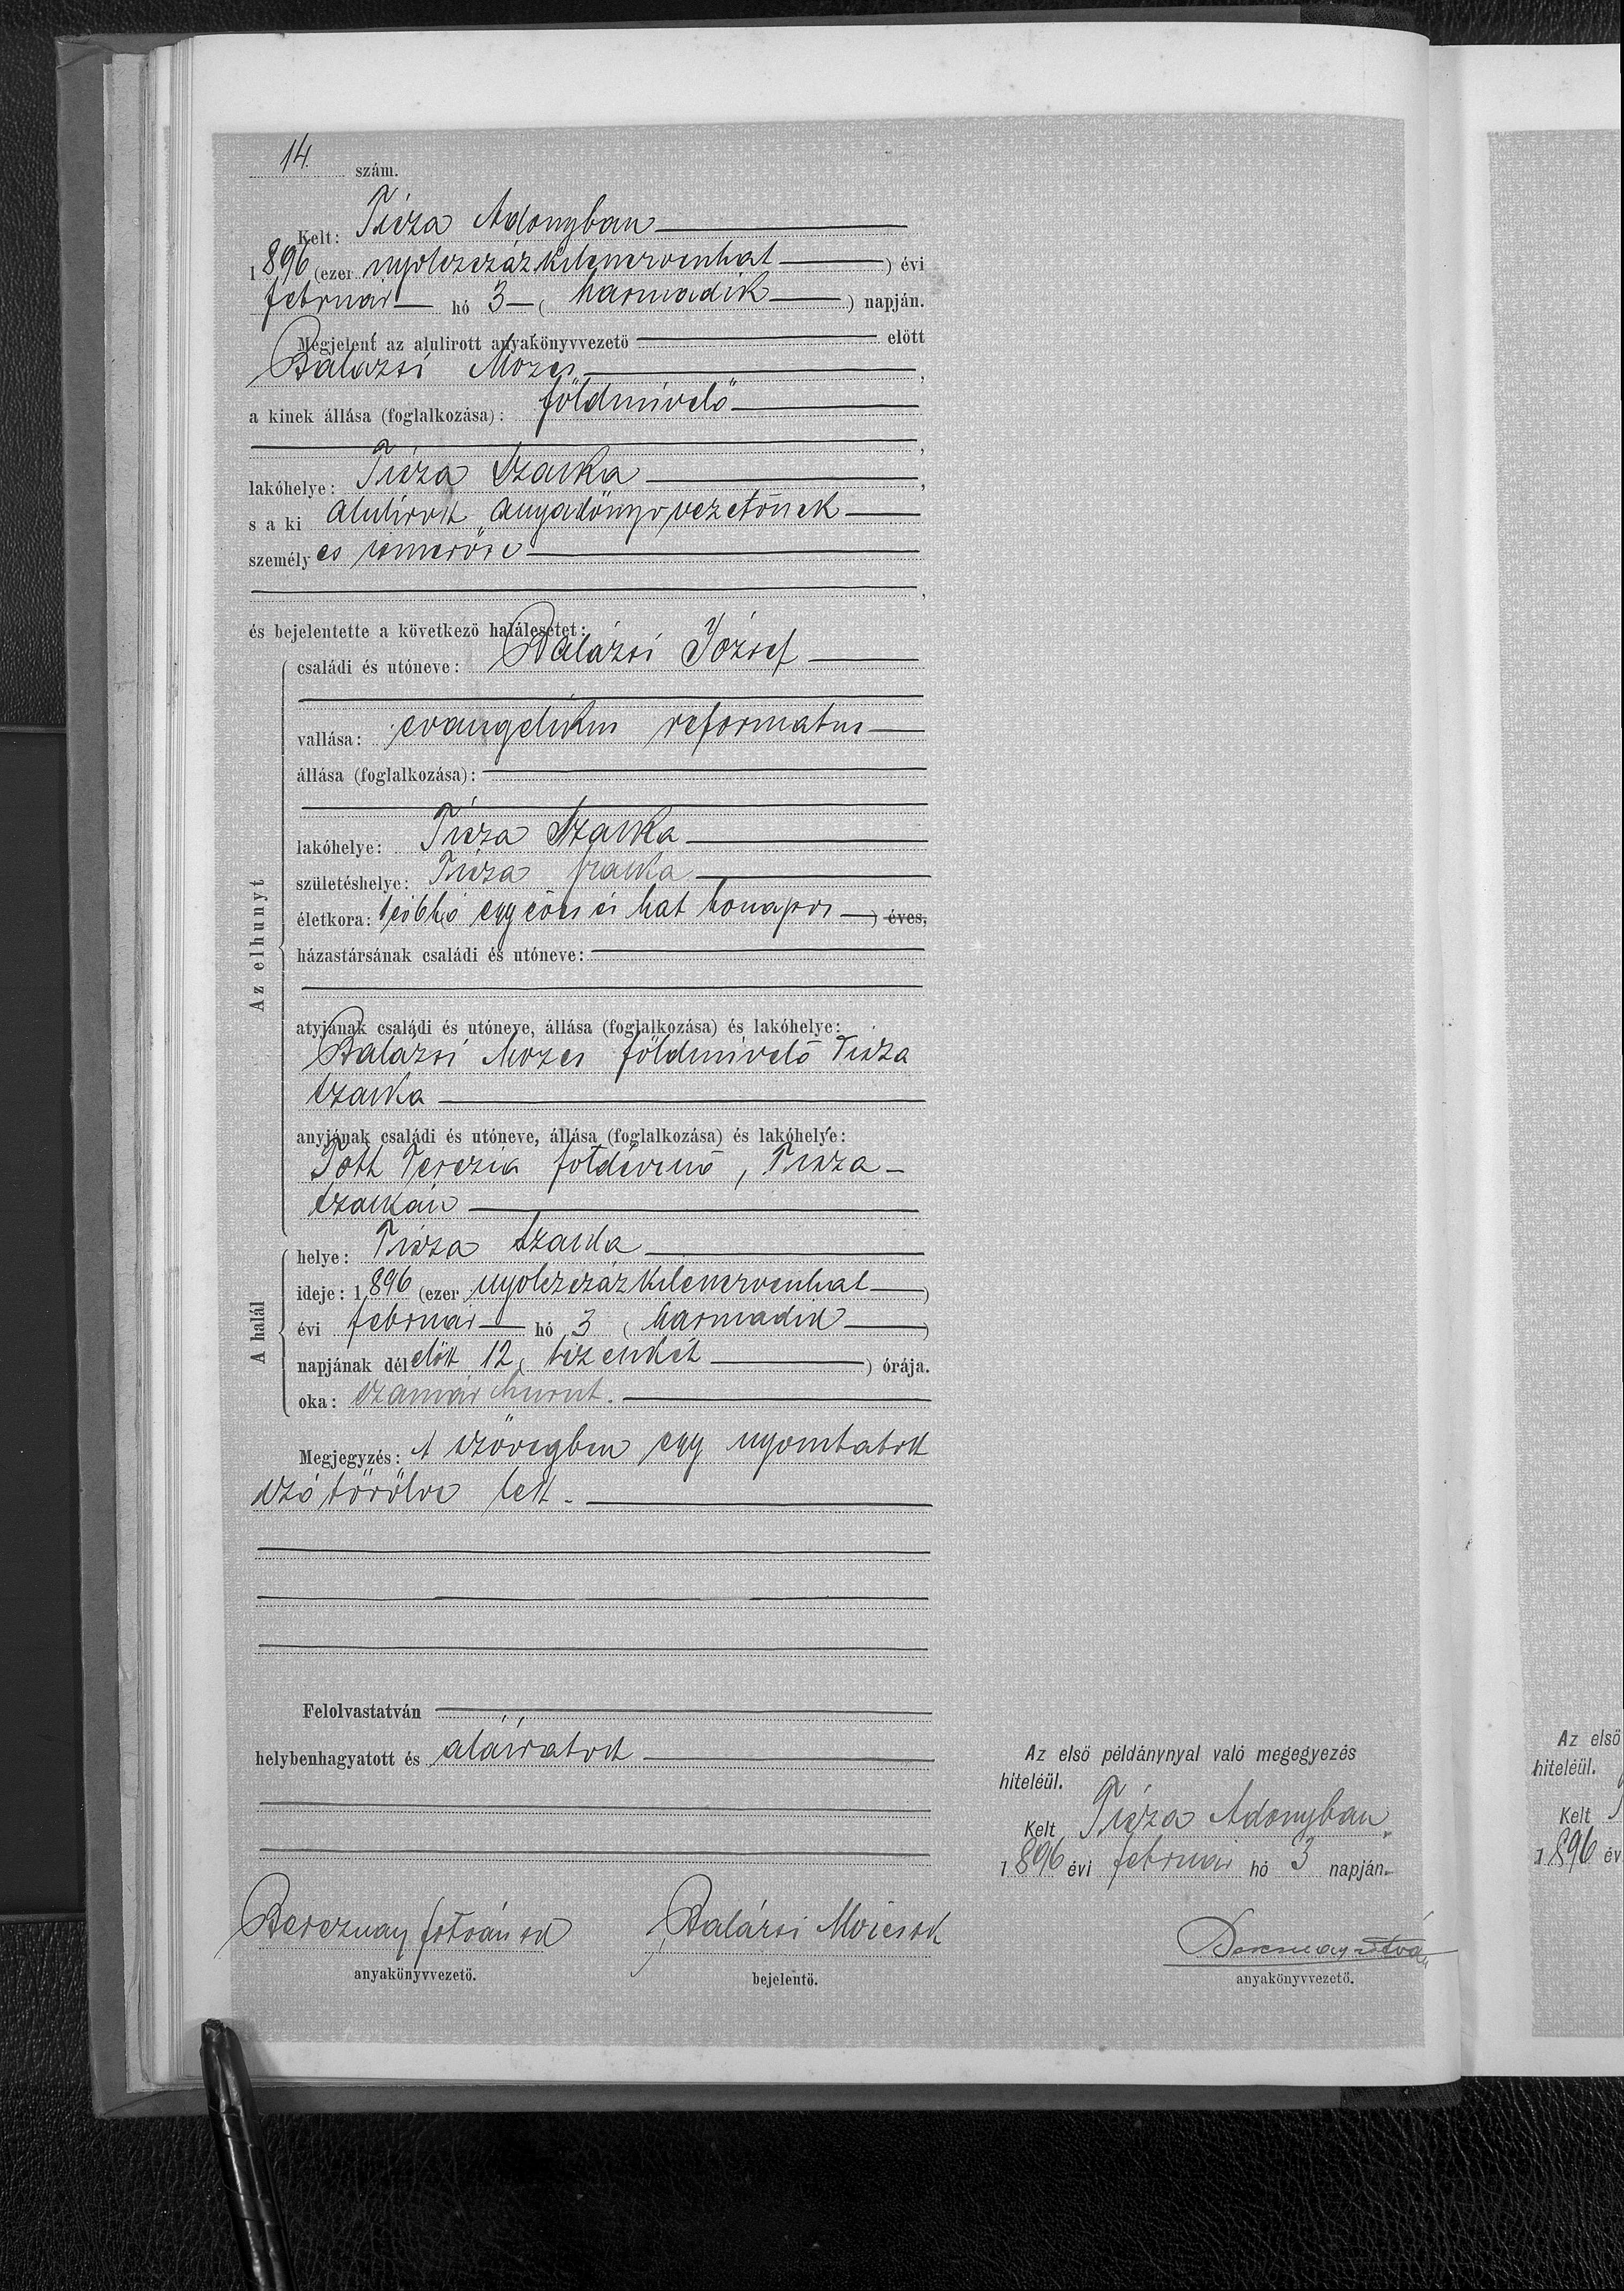 14. szám.
Kelt: Tisza Adonyban
1896 (ezer nyolczszázkilenczvenhat) évi
február hó 3 (harmadik) napján.
Megjelent az alulirott anyakönyvvezető előtt
Balázsi Mózes,
a kinek állása (foglalkozása): földmivelő
,
lakóhelye: Tisza Szalka,
s a ki alulirott anyakönyvvezetőnek
személyes ismerőse
,
és bejelentette a következő halálesetet:
Az elhunyt
családi és utóneve: Balázsi József
vallása: evangelikus reformatus
állása (foglalkozása):
lakóhelye: Tisza Szalka
születéshelye: Tisza szalka
életkora: 1 és 6 hó (egy éves és hat honapos) éves,
házastársának családi és utóneve:
atyjának családi és utóneve, állása (foglalkozása) és lakóhelye:
Balázsi Mózes földmivelő Tisza
szalka
anyjának családi és utóneve, állása (foglalkozása) és lakóhelye:
Tóth Terezia földésznő, Tisza-
szalkán
A halál
helye: Tisza Szalka
ideje: 1896 (ezer nyolczszázkilenczvenhat)
évi február hó 3 (harmadik)
napjának délelőtt 12 (tizenkét) órája.
oka: szamár hurut.
Megjegyzés: A szövegben egy nyomtatott
szó törölve lett.
Felolvastatván
helybenhagyatott és aláiratott
Az első példánynyal való megegyezés
hiteléül.
Kelt Tisza Adonyban,
1896 évi február hó 3 napján.
Bereznay István sk Balázsi Mózes sk
anyakönyvvezető. bejelentő.
Bereznay István
anyakönyvvezető.
Az első
hiteléül.
Kelt
1896 év